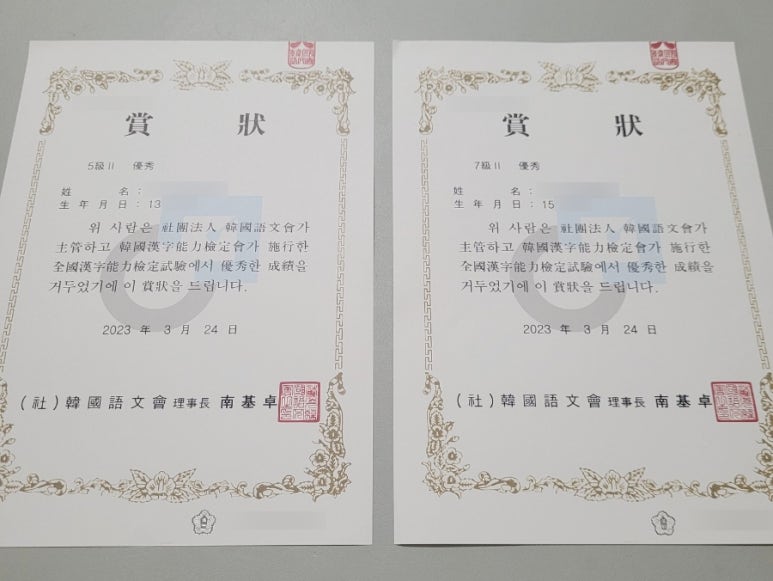 賞 狀
5級 II 優秀
姓 名 :
生 年 月 日 : 13
위 사람은 社團法人 韓國語文會가
主管하고 韓國漢字能力檢定會가 施行한
全國漢字能力檢定試驗에서 優秀한 成績을
거두었기에 이 賞狀을 드립니다.
2023 年 3 月 24 日
(社) 韓國語文會 理事長 南基卓
賞 狀
7級 II 優秀
姓 名 :
生 年 月 日 : 15
위 사람은 社團法人 韓國語文會가
主管하고 韓國漢字能力檢定會가 施行한
全國漢字能力檢定試驗에서 優秀한 成績을
거두었기에 이 賞狀을 드립니다.
2023 年 3 月 24 日
(社) 韓國語文會 理事長 南基卓